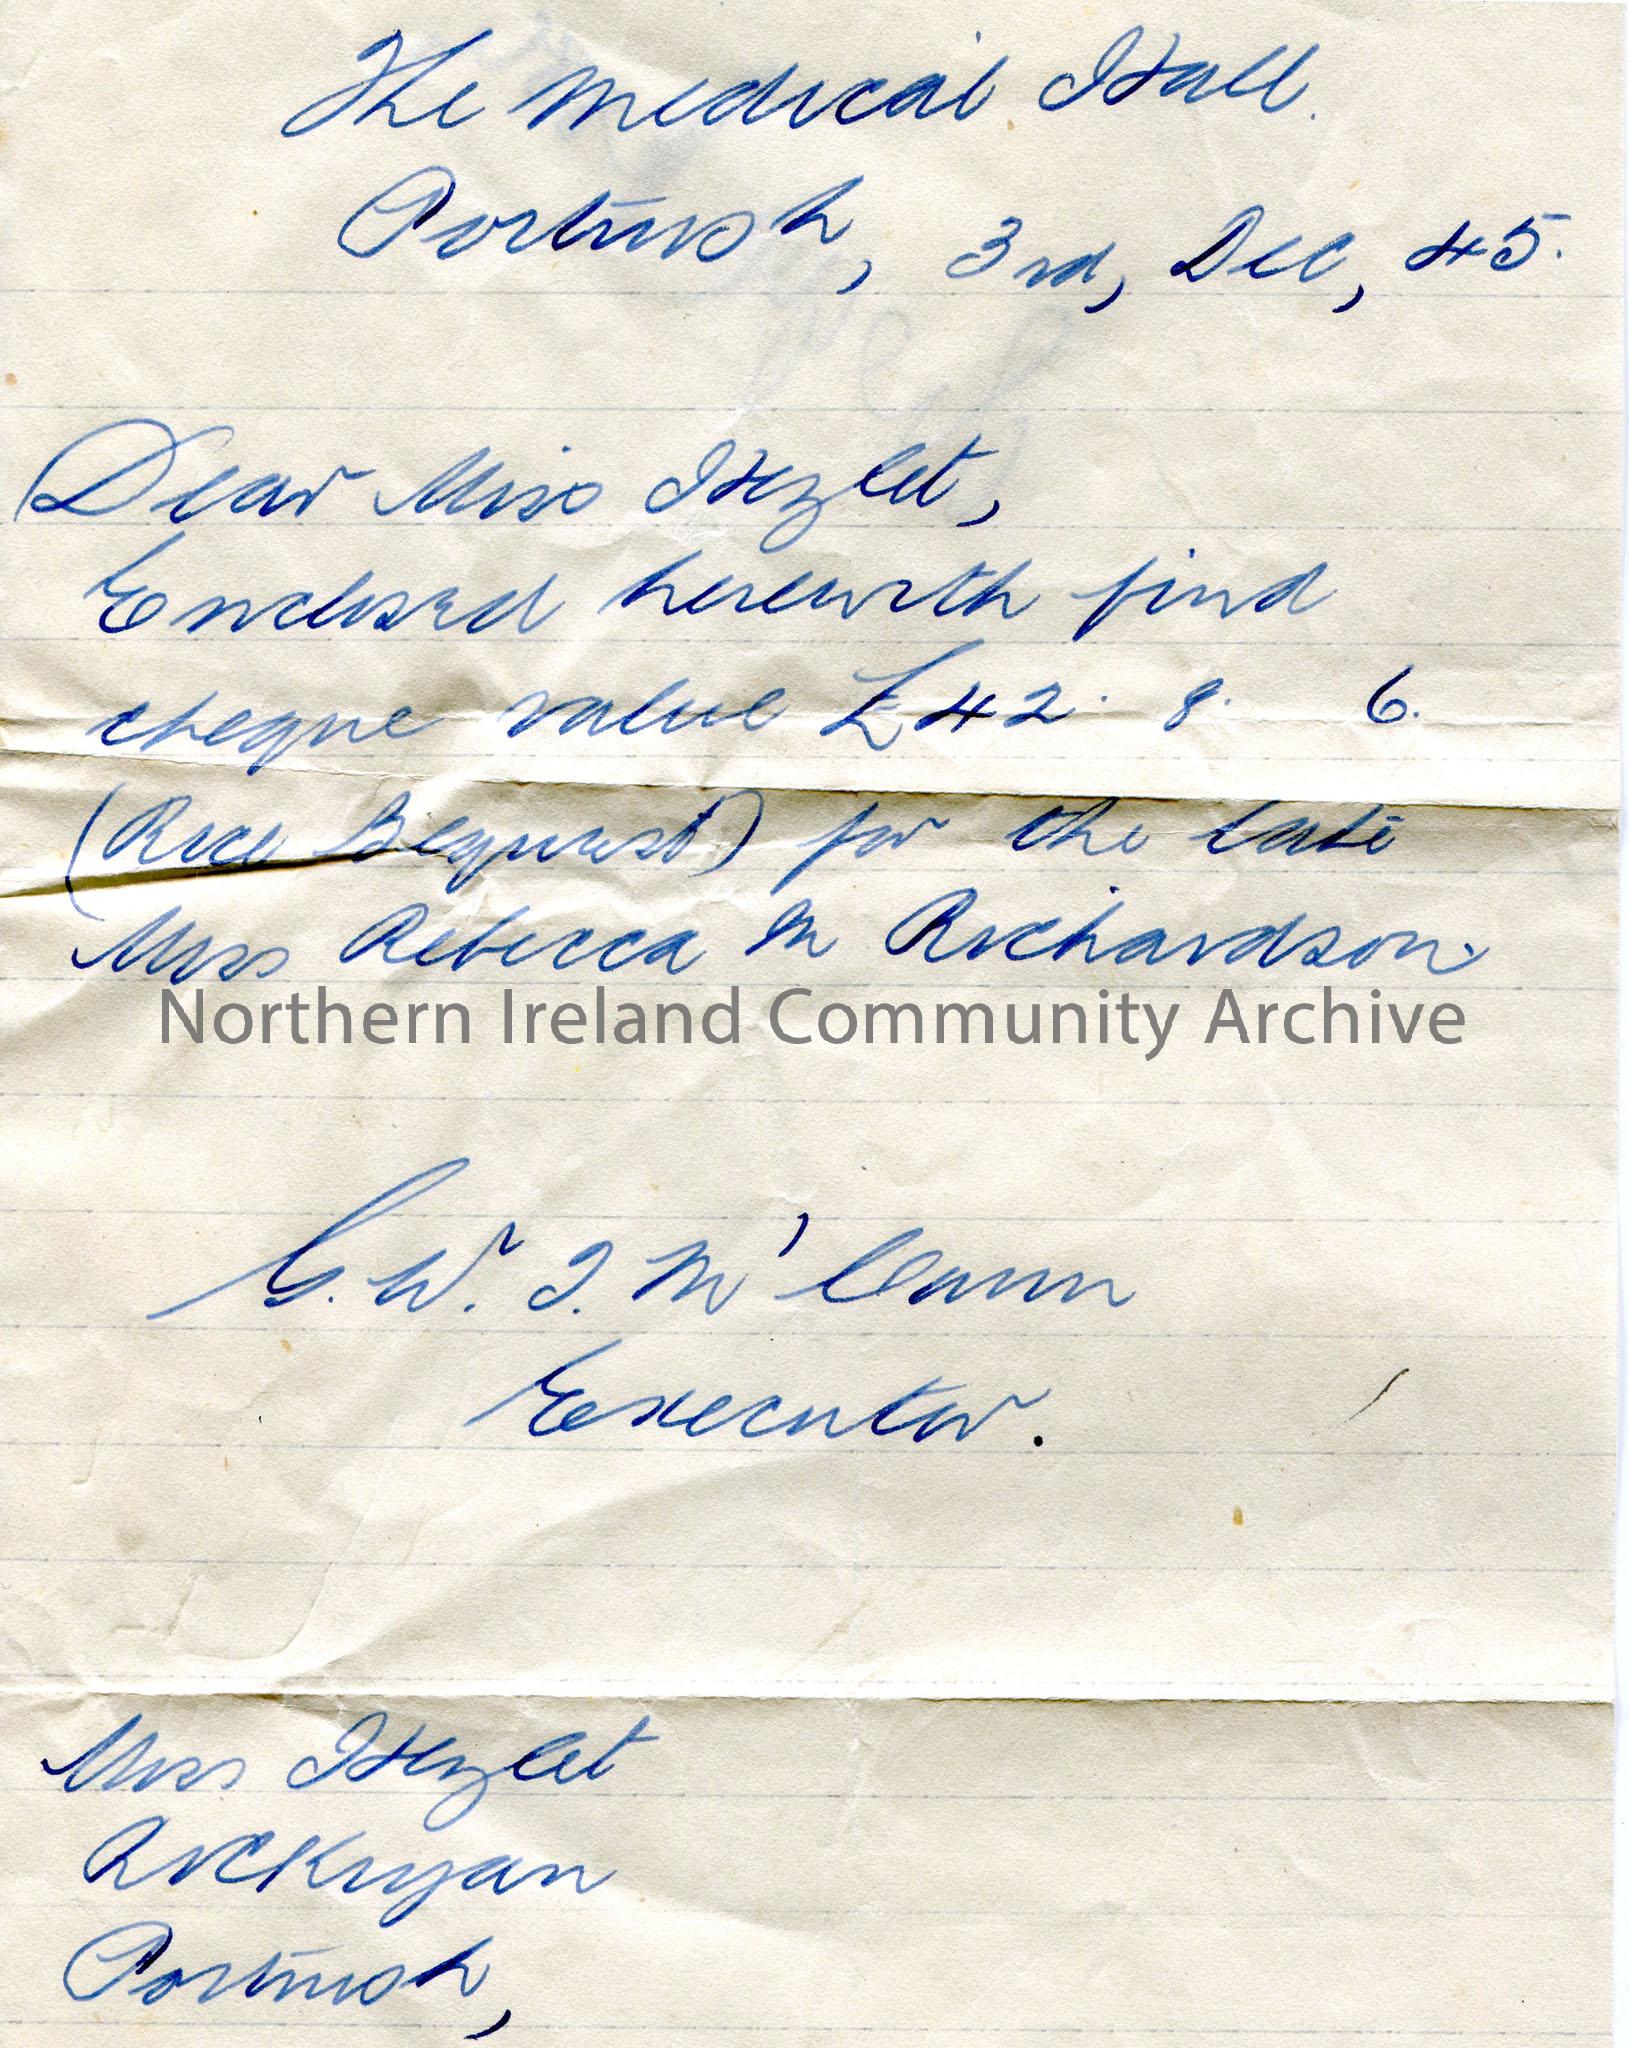 The Medical Hall.
Portrush, 3rd, Dec, 45.
Dear Miss Hezlet,
Enclosed herewith find
cheque value £42. 8. 6.
(Rice Bequest) for the late
Miss Rebecca M Richardson.
Northern Ireland Community Archive
G. W. J. M'Cann
Executor.
Miss Hezlet
Rockryan
Portrush,